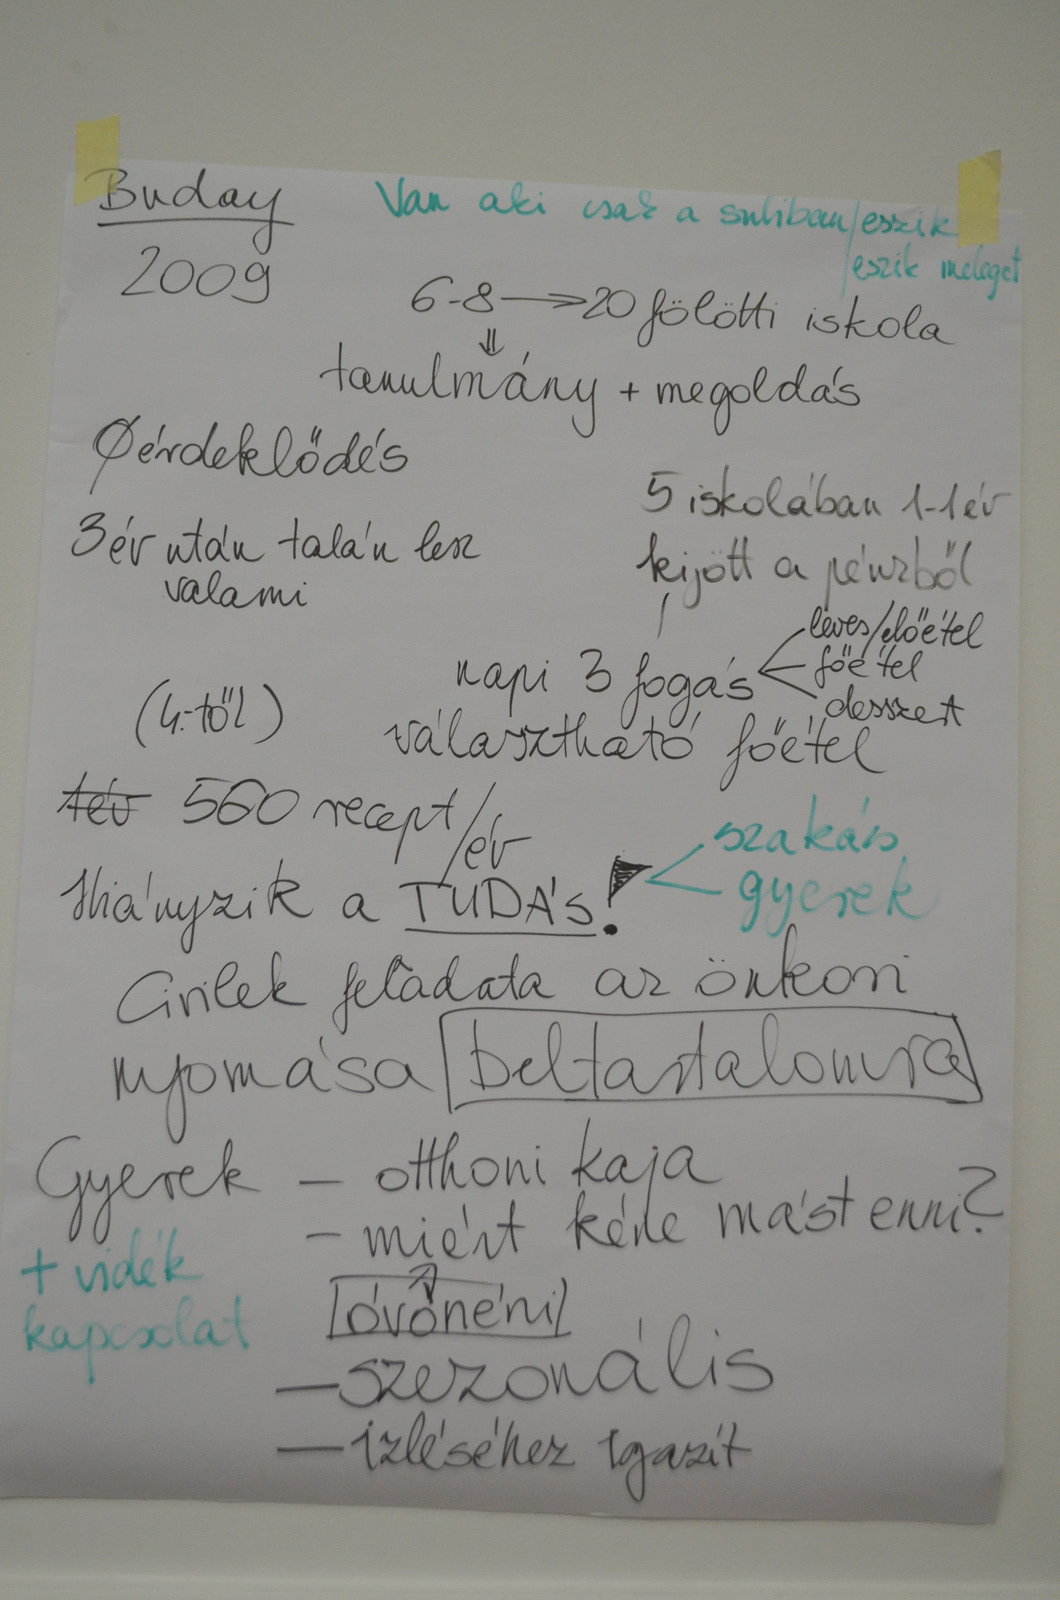 Buday
2009
Van aki csak a suliban/eszik
/eszik meleget
6-8 → 20 fölötti iskola
⇓
tanulmány + megoldás
Ø érdeklődés
5 iskolában 1-1 év
kijött a pénzből
3 év után talán lesz
valami
napi 3 fogás
leves/előétel
főétel
desszert
(4.-től)
választható főétel
1 év 560 recept/év
Hiányzik a TUDÁS!
szakács
gyerek
Civilek feladata az önkori
nyomása beltartalomra
Gyerek – otthoni kaja
– miért kéne mást enni?
+ vidék
kapcsolat
óvónéni
– szezonális
– ízléséhez igazít